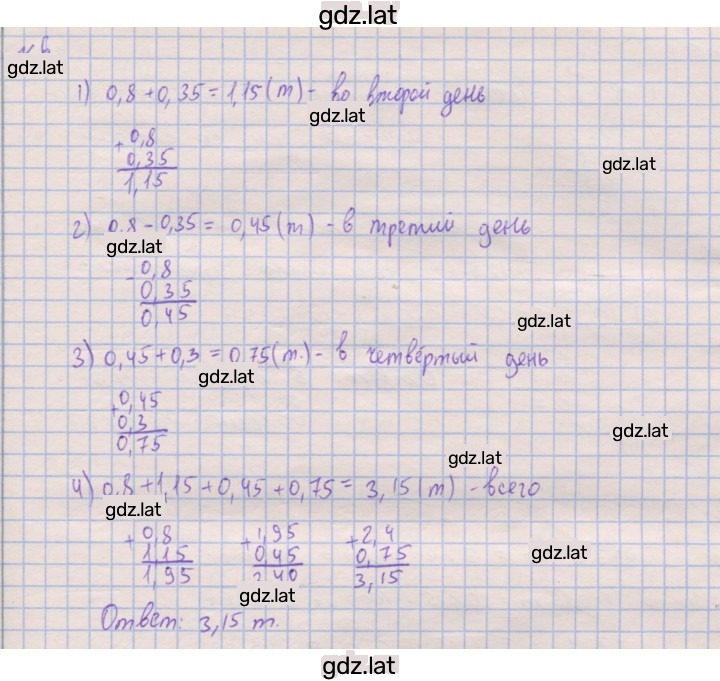 gdz.lat
gdz.lat
1) 0,8 + 0,35 = 1,15 (т) - во второй день
gdz.lat
+ 0,8
0,35
1,15
gdz.lat
2) 0.8 - 0,35 = 0,45 (т) - в третий день
gdz.lat
- 0,8
0,35
0,45
gdz.lat
3) 0,45 + 0,3 = 0.75 (т.) - в четвёртый день
gdz.lat
+ 0,45
0,3
0,75
gdz.lat
gdz.lat
4) 0.8 + 1,15 + 0,45 + 0,75 = 3,15 (т) - всего
gdz.lat
+ 0,8 + 1,95 + 2,4
1,15 0,45 0,75
1,95 2,40 3,15
gdz.lat
gdz.lat
Ответ: 3,15 т.
gdz.lat